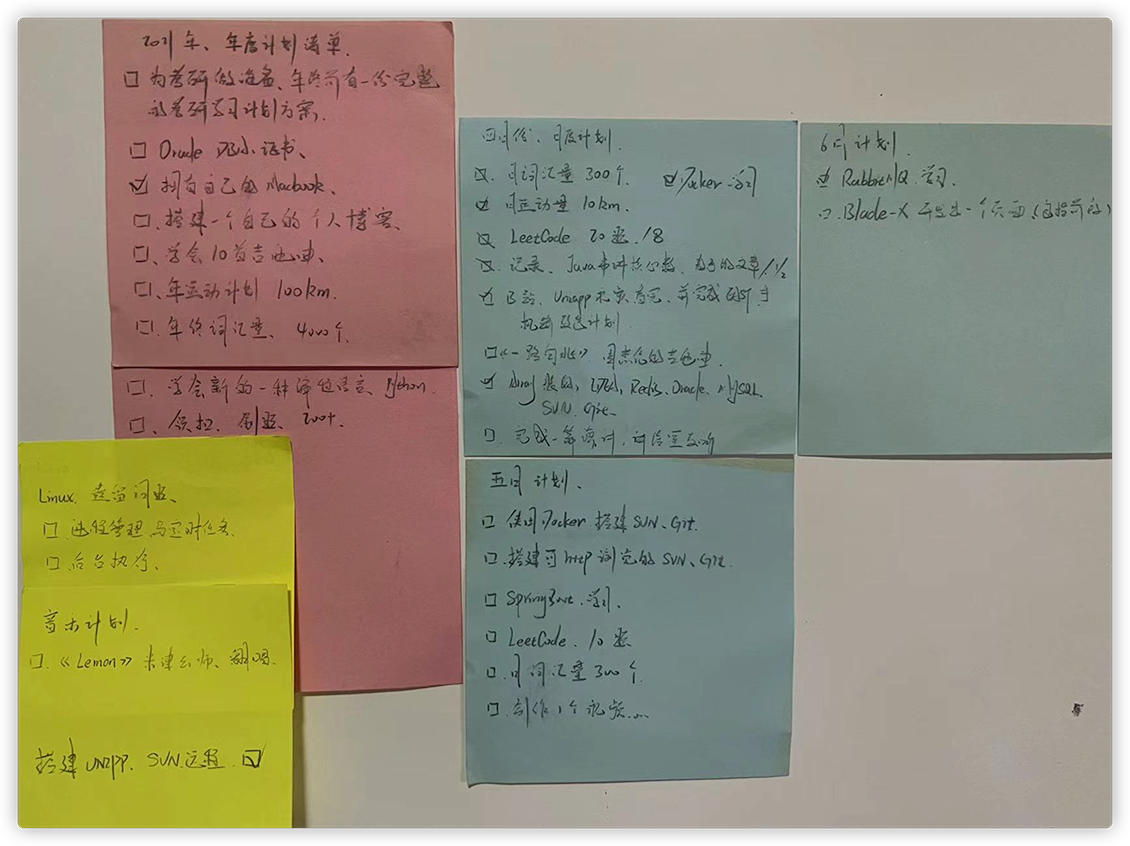 2021年、年度计划清单.
□ 为考研做准备、年终前有一份完整
的考研学习计划方案.
□ Oracle DBA 证书、
☑ 拥有自己的Macbook、
□、搭建一个自己的个人博客、
□、学会10首吉他曲、
□、年运动计划 100km.
□. 年终词汇量、4000个.
□. 学会新的一种编程语言、Python.
□、领扣、刷题、200+.
Linux
□ 进程管理与定时任务.
□ 后台执行、
音乐计划.
□.《Lemon》米津玄师、翻唱.
搭建UNIAPP、SVN远程. ☑
四月份、月度计划.
☒. 月词汇量 300个. ☑ Docker 学习
☑ 月运动量 10km.
☒ LeetCode 20题. /8
☒. 记录、Java 的文章/1/2
☑ B站、Uniapp 看完、并完成
计划.
□《一路向北》周杰伦的吉他曲.
☑ Redis、Oracle、MySQL
SVN、Git、
□. 完成一篇
五月计划、
□ 使用Docker 搭建SVN、Git.
□.搭建可http访问的SVN、Git.
□ SpringBoot.学习、
□ LeetCode. 10题
□. 月词汇量 300个.
□. 制作1个视频...
6月计划.
☑ RabbitMQ.学习.
□.Blade-X 开发出一个页面(包括前后)